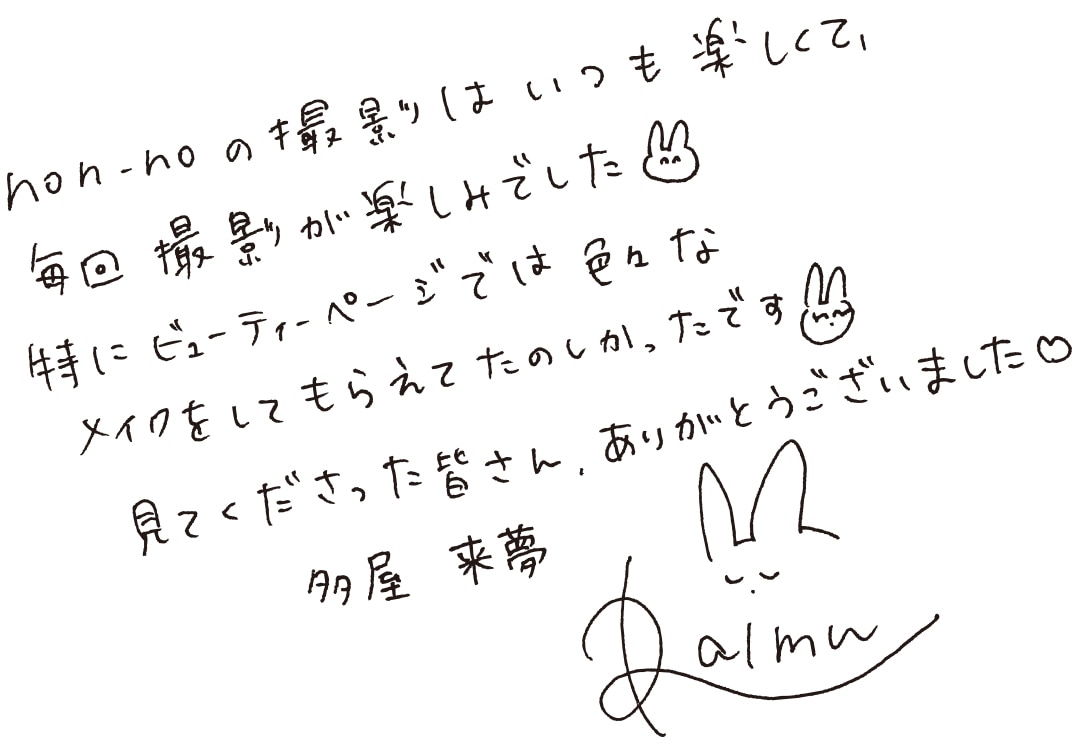 non-noの撮影はいつも楽しくて、
毎回撮影が楽しみでした
特にビューティーページでは色々な
メイクをしてもらえてたのしかったです
見てくださった皆さん、ありがとうございました♡
多屋 来夢
Raimu